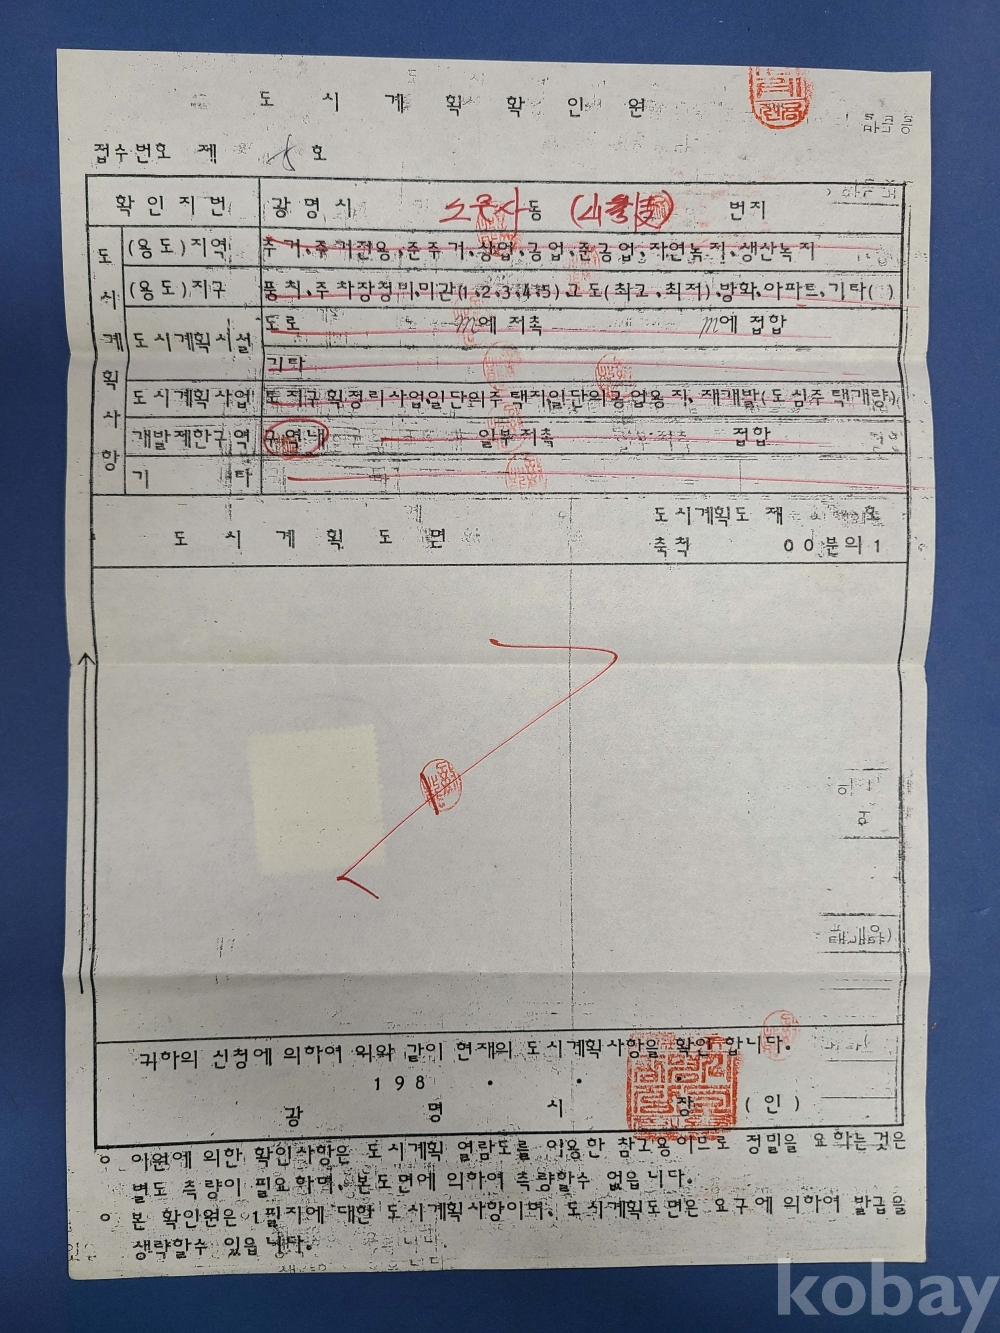 도시계획확인원
접수번호 제 호
확인지번 광명시 동 번지
도시계획사항
(용도)지역 주거、주거전용、준주거、상업、공업、준공업、자연녹지、생산녹지
(용도)지구 풍치、주차장정비、미관(1、2、3、4、5)、고도(최고、최저)、방화、아파트、기타( )
도시계획시설 도로 m에 저촉 m에 접합
기타
도시계획사업 토지구획정리사업、일단의주택지、일단의공업용지、재개발(도심주택개량)
개발제한구역 구역내 일부저촉 접합
기 타
도시계획도면
도시계획도 제 호
축척 00분의 1
귀하의 신청에 의하여 위와 같이 현재의 도시계획사항을 확인합니다.
198 . . .
광 명 시 장 (인)
o 이원에 의한 확인사항은 도시계획 열람도를 이용한 참고용이므로 정밀을 요하는것은
별도 측량이 필요하며、본도면에 의하여 측량할수 없읍니다.
o 본 확인원은 1필지에 대한 도시계획사항이며、도시계획도면은 요구에 의하여 발급을
생략할수 있읍니다.
kobay